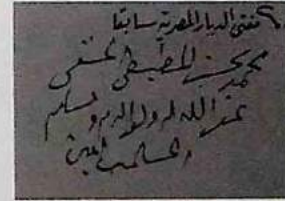 مفتى الديار المصرية سابقا
محمد بخيت المطيعى الحنفى
غفر الله له ولوالديه ولسلم
المسلمين آمين